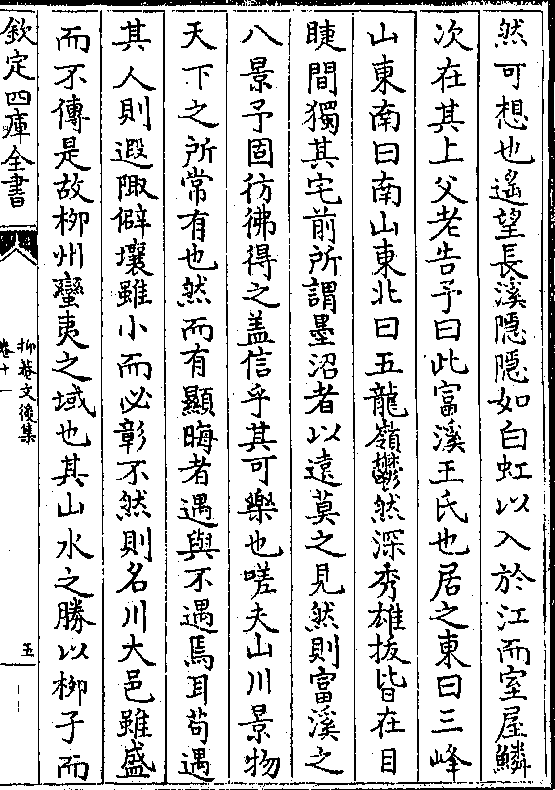 然可想也遙望長溪隱隱如白虹以入於江而室屋鱗
次在其上父老告予曰此富溪王氏也居之東曰三峰
山東南曰南山東北曰五龍嶺鬱然深秀雄拔皆在目
睫間獨其宅前所謂墨沼者以遠莫之見然則富溪之
八景予固彷彿得之盖信乎其可樂也嗟夫山川景物
天下之所常有也然而有顯晦者遇與不遇焉耳苟遇
其人則遐陬僻壤雖小而必彰不然則名川大邑雖盛
而不傳是故柳州蠻夷之域也其山水之勝以柳子而
欽定四庫全書
柳菴文後集
卷十一
五